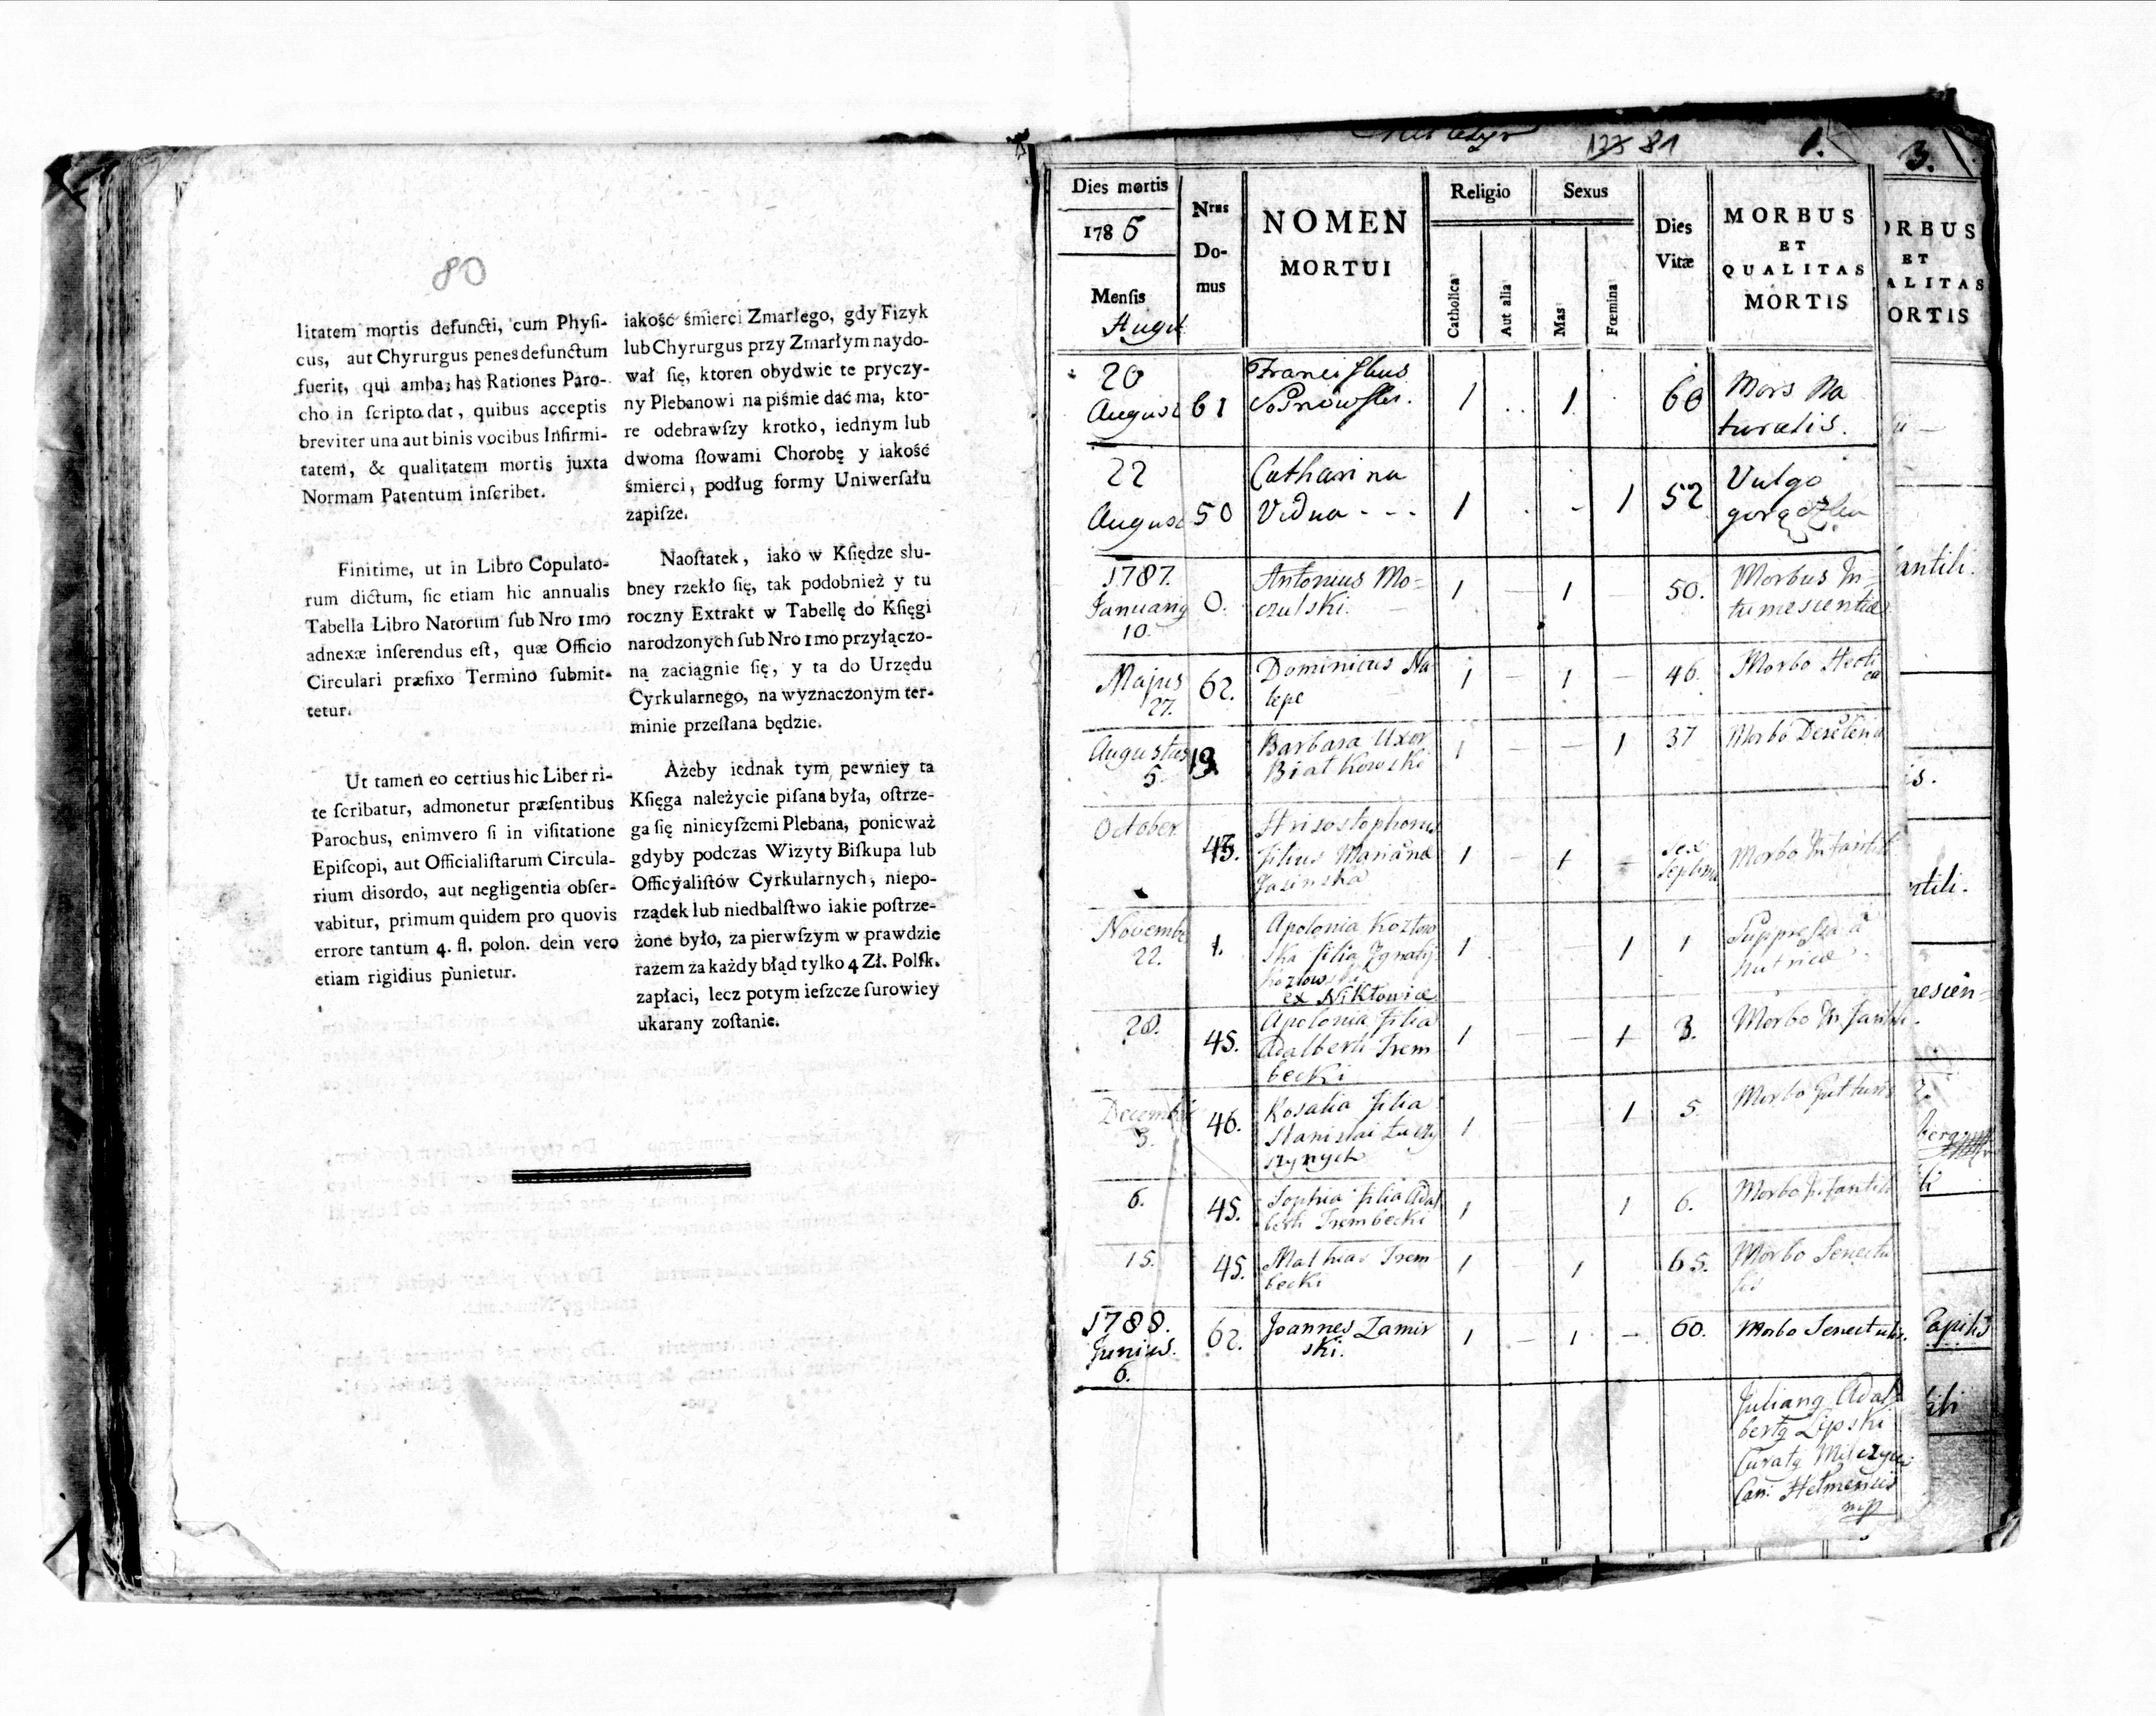 80
litatem mortis defuncti, cum Physi-
cus, aut Chyrurgus penes defunctum
fuerit, qui ambas has Rationes Paro-
cho in scripto dat, quibus acceptis
breviter una aut binis vocibus Infirmi-
tatem, & qualitatem mortis juxta
Normam Patentum inscribet.
Finitime, ut in Libro Copulato-
rum dictum, sic etiam hic annualis
Tabella Libro Natorum sub Nro 1mo
adnexæ inserendus est, quæ Officio
Circulari præfixo Termino submit-
tetur.
Ut tamen eo certius hic Liber ri-
te scribatur, admonetur præsentibus
Parochus, enimvero si in visitatione
Episcopi, aut Officialistarum Circula-
rium disordo, aut negligentia obser-
vabitur, primum quidem pro quovis
errore tantum 4. fl. polon. dein vero
etiam rigidius punietur.
iakość śmierci Zmarłego, gdy Fizyk
lub Chyrurgus przy Zmarłym naydo-
wał się, ktoren obydwie te pryczy-
ny Plebanowi na piśmie dać ma, kto-
re odebrawszy krotko, iednym lub
dwoma słowami Chorobę y iakość
śmierci, podług formy Uniwersału
zapisze.
Naostatek, iako w Księdze slu-
bney rzekło się, tak podobnież y tu
roczny Extrakt w Tabellę do Księgi
narodzonych sub Nro 1mo przyłączo-
ną zaciągnie się, y ta do Urzędu
Cyrkularnego, na wyznaczonym ter-
minie przesłana będzie.
Ażeby iednak tym pewniey ta
Księga należycie pisana była, ostrze-
ga się ninieyszemi Plebana, ponieważ
gdyby podczas Wizyty Biskupa lub
Officyalistów Cyrkularnych, niepo-
rządek lub niedbalstwo iakie postrze-
żone było, za pierwszym w prawdzie
razem za każdy błąd tylko 4 Zł. Polsk.
zapłaci, lecz potym ieszcze surowiey
ukarany zostanie.
81
1.
3.
Dies mortis
1786
Mensis
August
Nrus
Do-
mus
NOMEN
MORTUI
Religio
Catholica
Aut alia
Sexus
Mas
Fœmina
Dies
Vitæ
MORBUS
ET
QUALITAS
MORTIS
ORBUS
ET
ALITAS
ORTIS
20 Franciskus Mors Na
August 61 1 1 60 turalis.
22 Catharina Vulgo
August 50 Vidua - - - 1 1 52
1787. Antonius Mo- Morbus In-
Januarij 0. czulski. 1 1 50. tumescentiæ
10.
Majus 62. Dominicus Na 1 1 46. Morbo Hecti
27. lepe ca
Augustus 19 Barbara Uxor 1 1 37 Morbo
5. Białkowski
October
43. filius Marianæ 1 1 sex Morbo Infantili
Jasinska septima
Novembr Apolonia Kozłow Suppressa a
22. 1. ska filia Ignatij 1 1 1 nutrice
Kozłowski
ex Niktowice
28. 45. Apolonia filia 1 1 3. Morbo Infantili.
Adalberti Trem
becki
Decembris 46. Rosalia filia 1 1 5 Morbo Gutturis
3. Stanislai
6. 45. Sophia filia Adal 1 1 6. Morbo Infantili
berti Trembecki
15. 45. Mathias Trem 1 1 65. Morbo Senectu
becki tis
1788. 62. Joannes Zamir 1 1 60. Morbo Senectutis.
Junius. ski.
6.
Adal
berty Lipski
Curaty
Can: Helmensis
mp